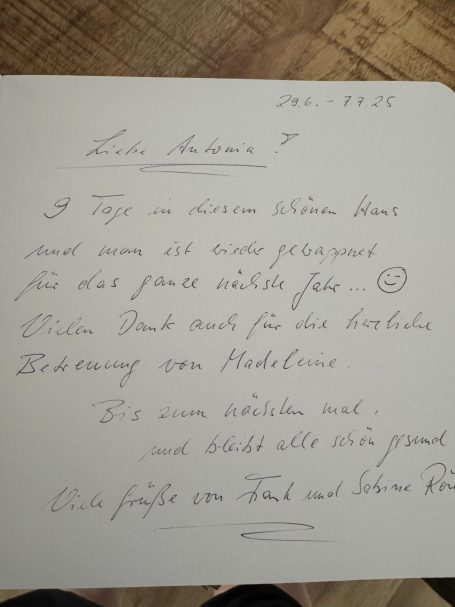 29.6. - 7.7.25
Liebe Antonia!
9 Tage in diesem schönen Haus
und man ist wieder gewappnet
für das ganze nächste Jahr... ☺
Vielen Dank auch für die herzliche
Betreuung von Madeleine.
Bis zum nächsten mal,
und bleibt alle schön gesund
Viele Grüße von Frank und Sabine